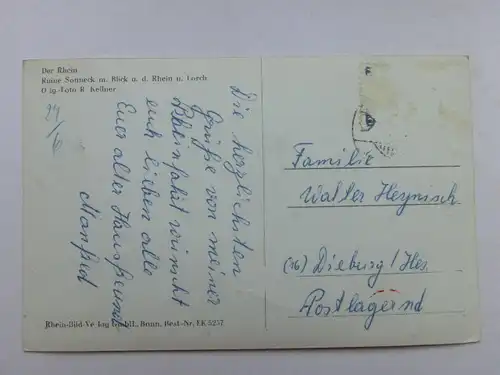 Der Rhein
Ruine Sonneck m. Blick a. d. Rhein u. Lorch
O ig-Foto R Kellner
29/6
Die herzlichsten
Grüße von meiner
Rheinfahrt wünscht
euch lieben alle
Euer alter Hausfreund
Manfred
Familie
Walter Heynisch
(16) Dieburg / Hes
Postlagernd
Rhein-Bild-Ve lag GmbH., Bonn, Best-Nr. EK 5257